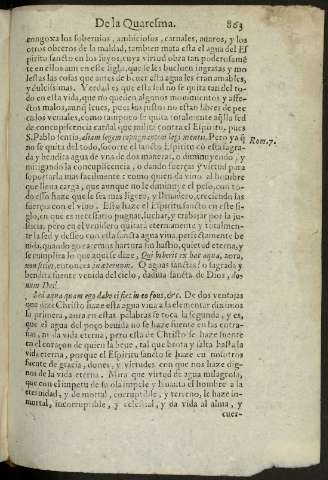 De la Quaresma. 863
congoxa los soberuios, ambiciosos, carnales, auaros, y los
otros obreros de la maldad, tambien mata esta el agua del Es
piritu sancto en los suyos, cuya virtud obra tan poderosamē
te en ellos aun en este siglo, que se les bueluen ingratas y mo
lestas las cosas que antes de beuer esta agua les eran amables,
y dulcissimas. Verdad es que esta sed no se quita tan del to-
do en esta vida, que no queden algunos mouimientos y affe-
ctos malos, aunq̃ leues, pues los justos no estan libres de pec
cados veniales, como tampoco se quita totalmente aq̃lla sed
de concupiscencia carnal que milita contra el Espiritu, pues
S. Pablo sentia, aliam legem repugnantem legi mentis. Pero ya q̃
Rom. 7.
no se quita del todo, socorre el sancto Espiritu cō esta sagra-
da y bendita agua de vna de dos maneras, o diminuyendo, y
mitigando la concupiscencia, o dando fuerças y virtud para
soportarla mas facilmente: como quien da vino al hombre
que lleua carga, que aunque no le diminuye el peso, con to-
do esso haze que le sea mas ligero, y lleuadero, creciendo las
fuerças con el vino. Esto haze el Espiritu sancto en este si-
glo, en que es necessario pugnar, luchar, y trabajar por la ju-
sticia, pero en el venidero quitara eternamente y totalmen-
te la sed y desseo con esta sancta agua viua, perfectamente be
uida, quando gozaremos hartura sin hastio, quietud eterna, y
se cumplira lo que aqui se dize, Qui biberit ex hac aqua,
non sitiet, entonces in æternum. O aguas sanctas, o sagrada y
bendita fuente venida del cielo, dadiua sancta de Dios,
num Dei.
Sed aqua quam ego dabo ei fiet in eo fons, &c. De dos ventajas
que dize Christo haze esta agua viua a la elementar diximos
la primera, aora en estas palabras se toca la segunda, y es,
que el agua del pozo beuida no se haze fuente en las entra-
ñas, ni da vida eterna, pero esta de Christo se haze fuente
en el coraçon de quien la beue, tal que brota y salta hasta la
vida eterna, porque el Espiritu sancto se haze en nosotros
fuente de gracia, dones, y virtudes con que nos haze dig-
nos de la vida eterna. Mira que virtud de agua milagrosa,
que con el impetu de su ola impele y leuanta el hombre a la
eternidad, y de mortal, corruptible, y terreno, le haze in-
mortal, incorruptible, y celestial, y da vida al alma, y
cuer-